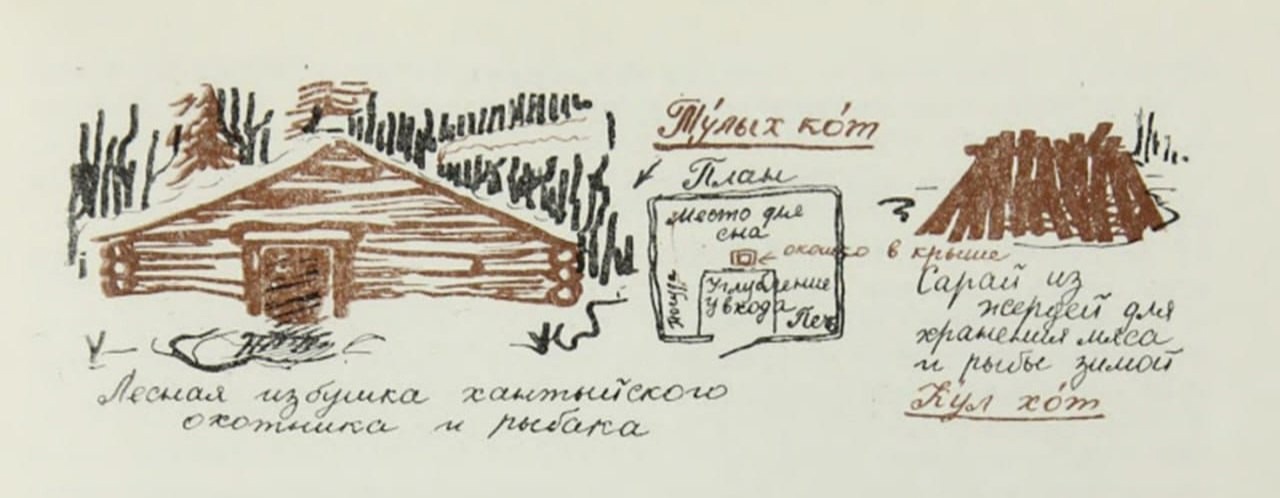 Ту́лых ко́т
План
Место для
сна
окошко в крыше
Посуда
Углубление
у входа
Печь
Сарай из
жердей для
хранения мяса
и рыбы зимой
Ку́л хо́т
Лесная избушка хантыйского
охотника и рыбака